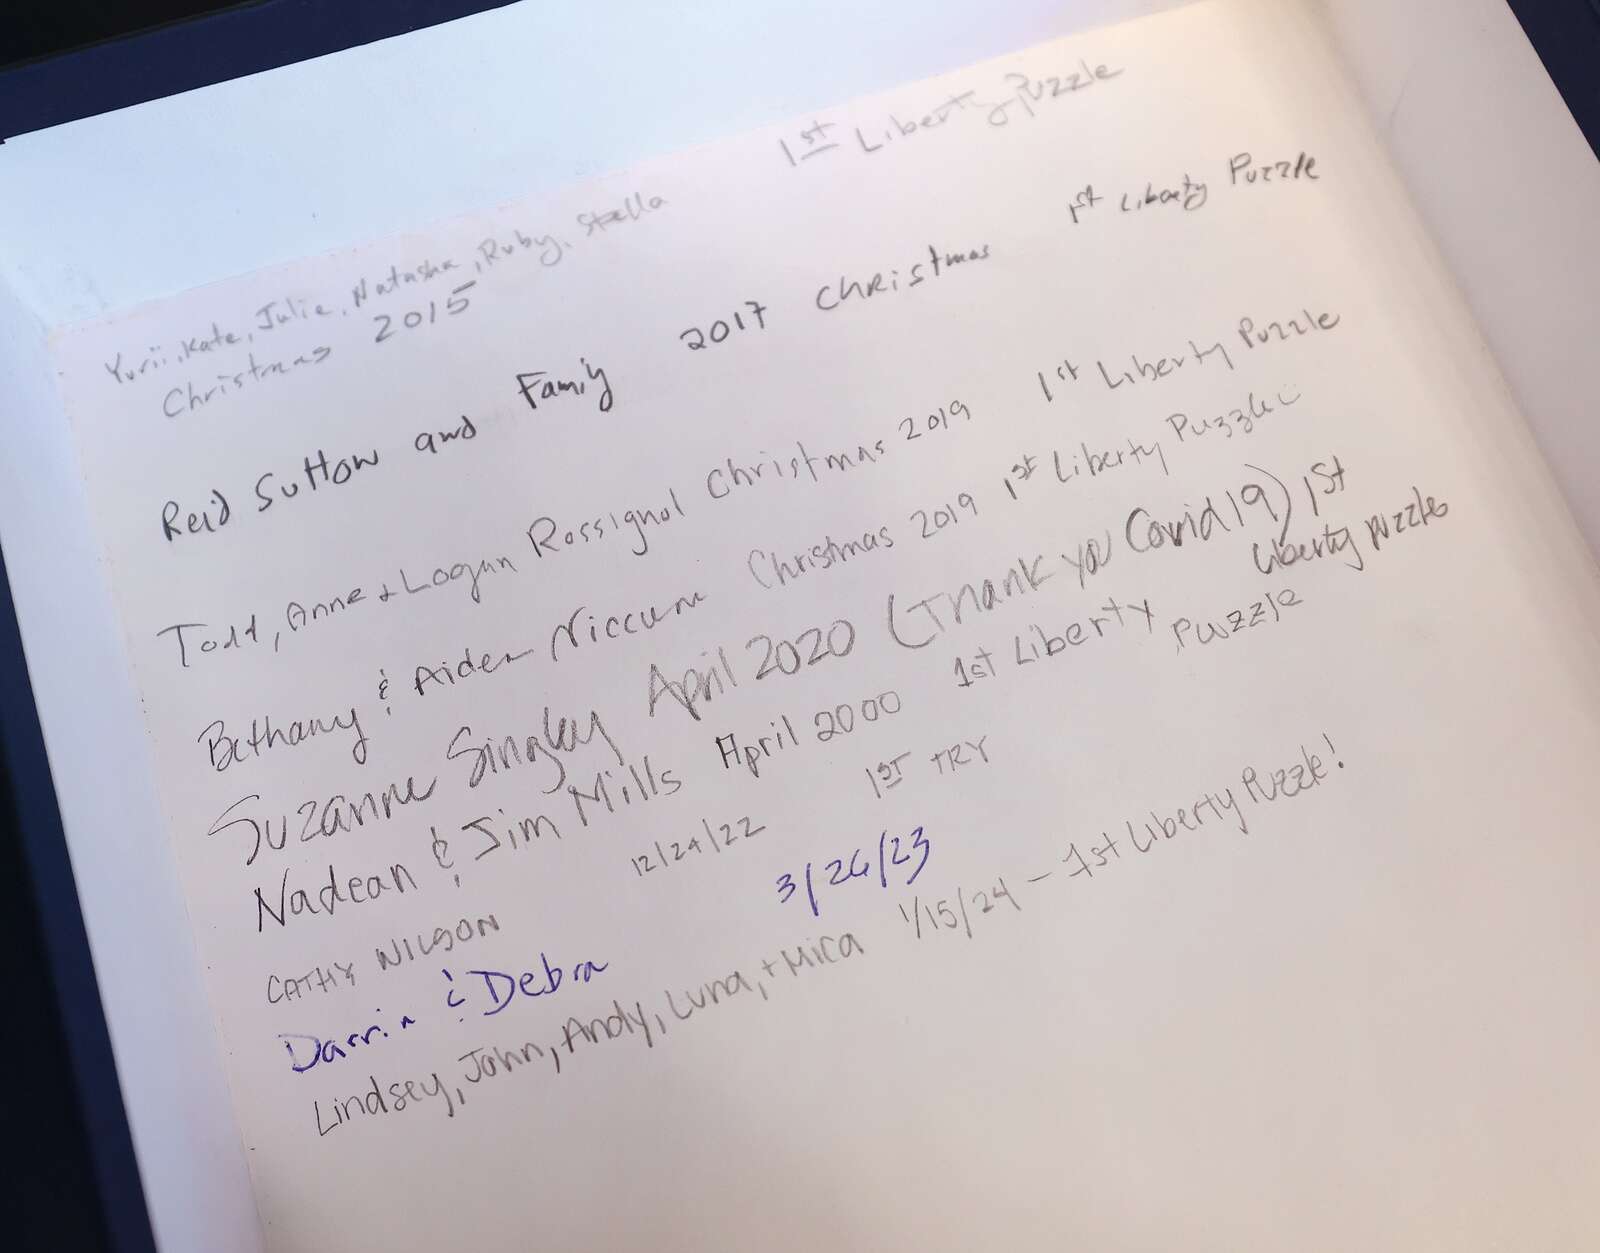 Yurii, Kate, Julie, Natasha, Ruby, Stella 1st Liberty Puzzle
Christmas 2015
Reid Sutton and Family 2017 Christmas 1st Liberty Puzzle
Todd, Anne + Logan Rossignol Christmas 2019 1st Liberty Puzzle
Bethany & Aiden Niccum Christmas 2019 1st Liberty Puzzle
Suzanne Singley April 2020 (Thank you Covid 19) 1st Liberty puzzle
Nadean & Jim Mills April 2000 1st Liberty Puzzle
CATHY WILSON 12/24/22 1ST TRY
Darrin & Debra 3/26/23
Lindsey, John, Andy, Luna, + Mica 1/15/24 – 1st Liberty Puzzle!